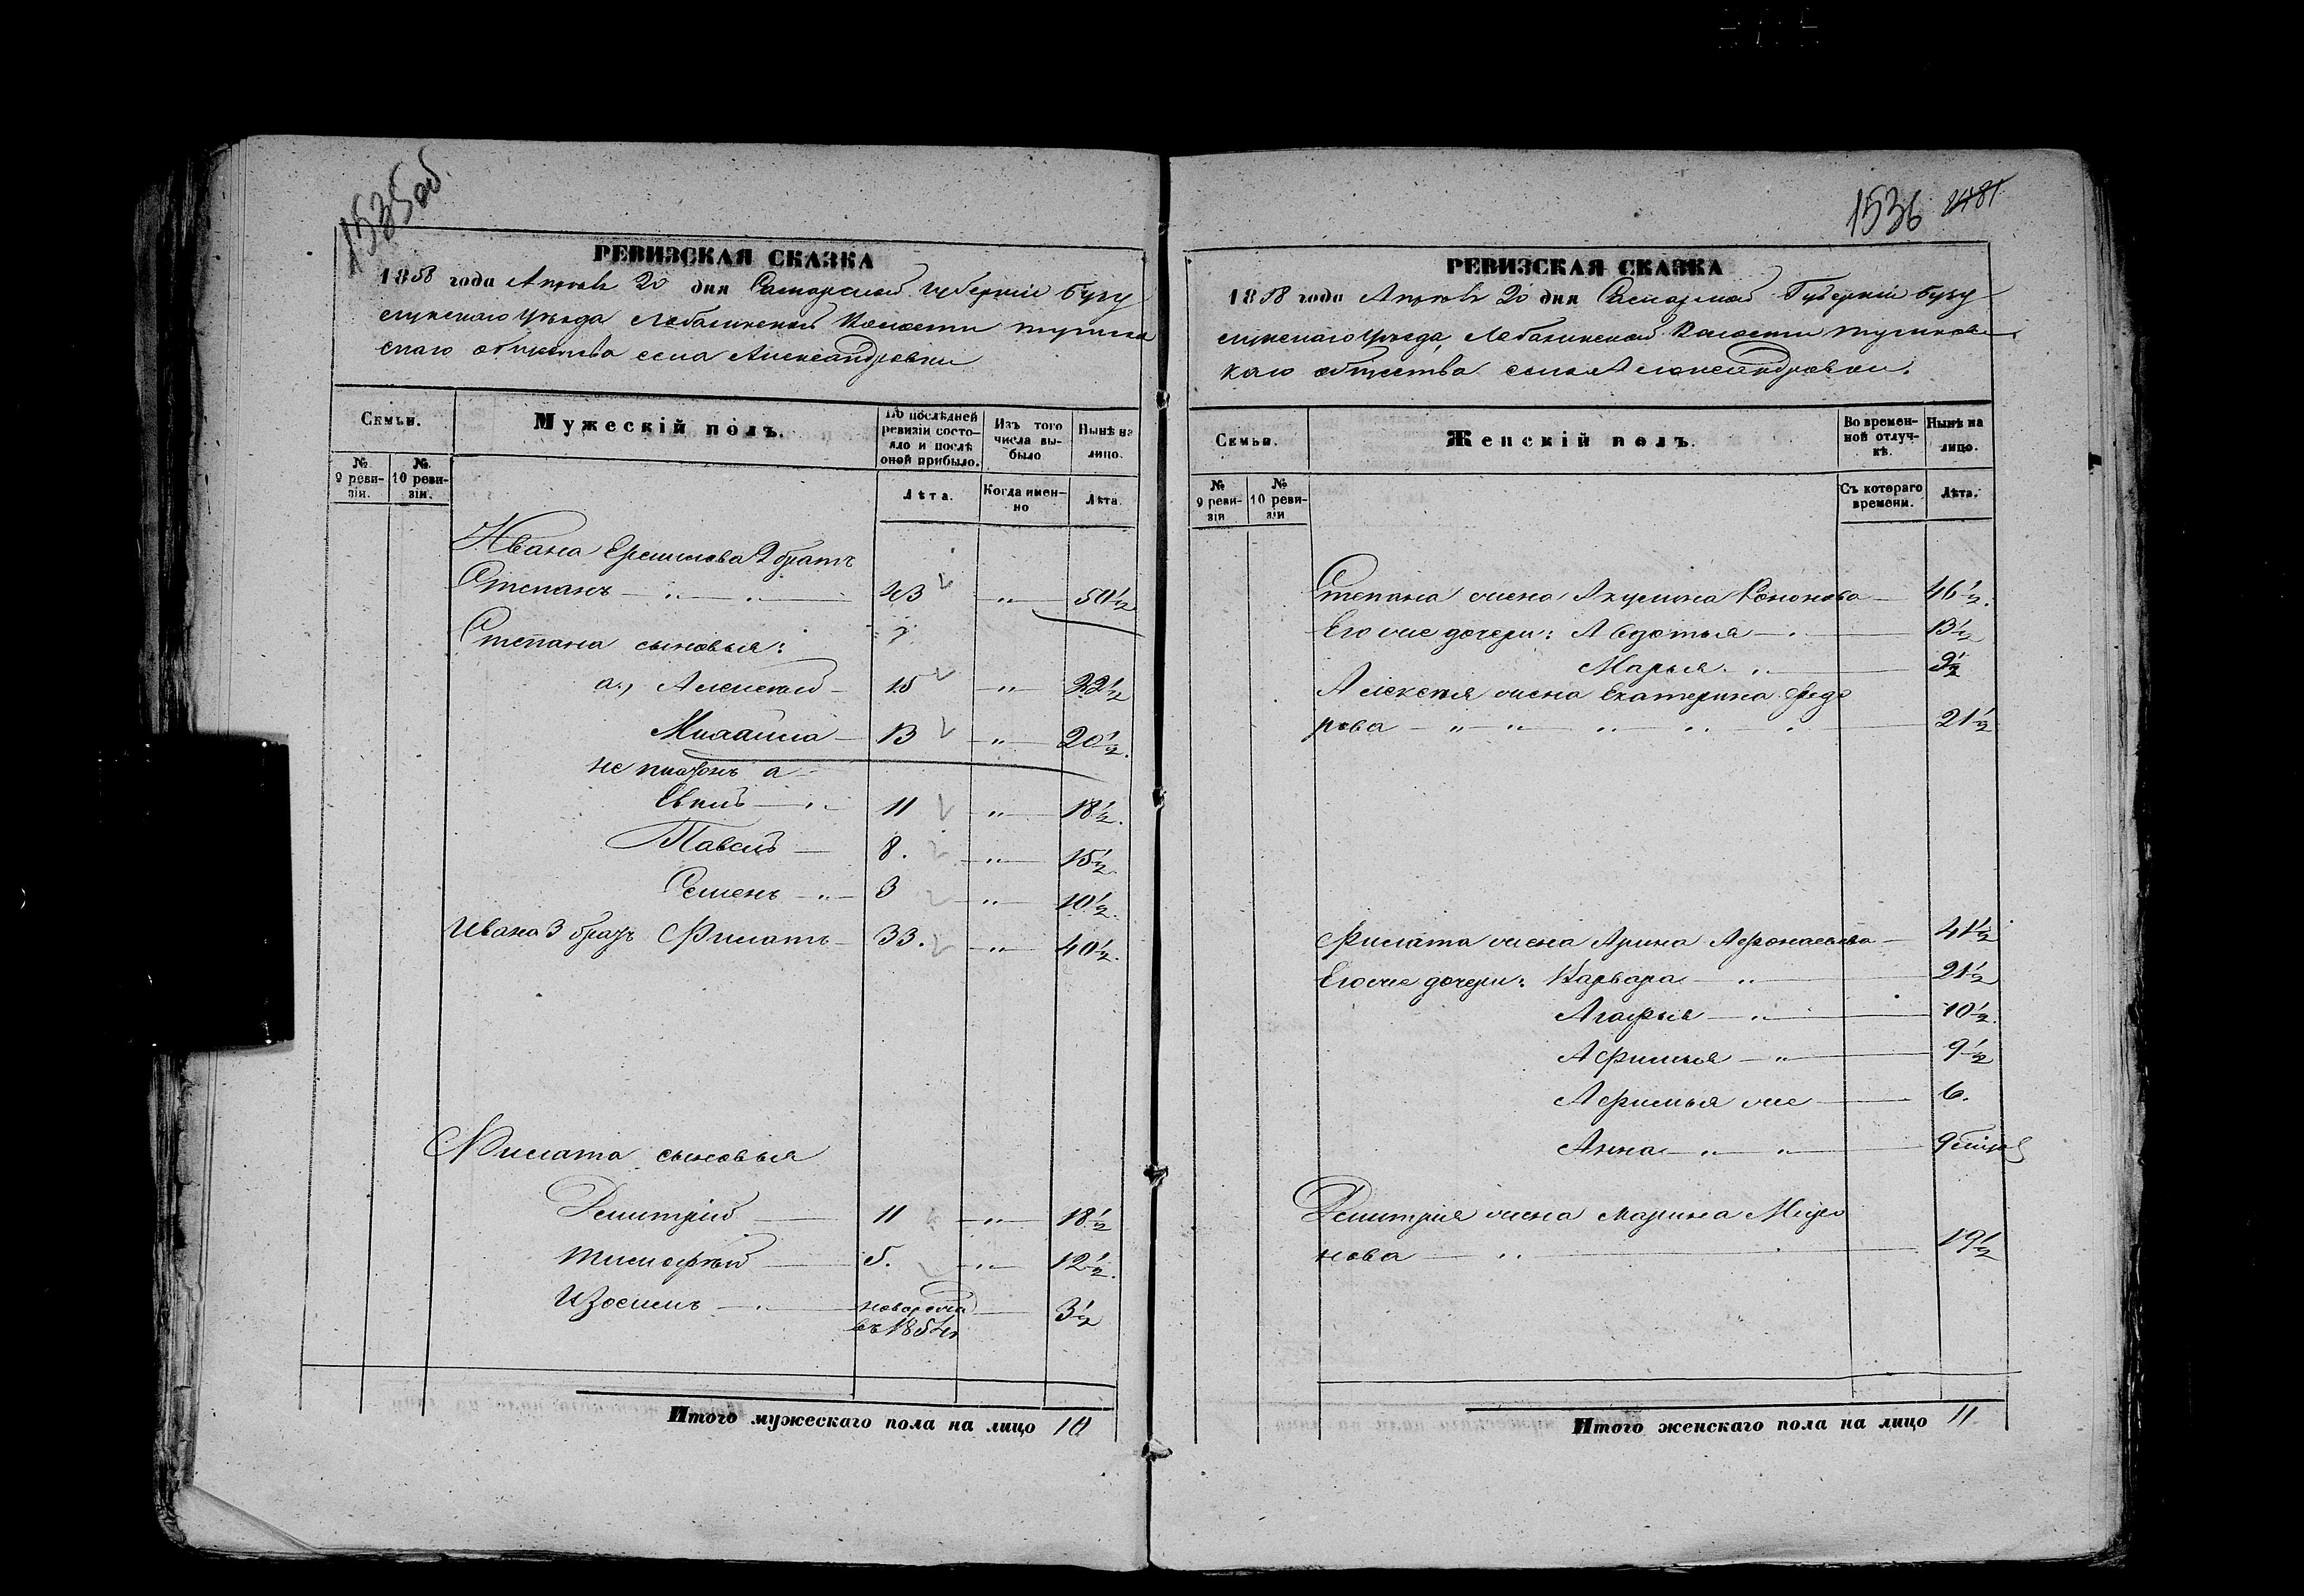 1535 об.
РЕВИЗСКАЯ СКАЗКА
1858 года Апреля 20 дня Самарской губерніи Бузу
лукскаго уѣзда Лобазинской волости
скаго общества села Александровки
Семьи.
Мужескій полъ.
По послѣдней ревизіи состояло и послѣ оной прибыло.
Изъ того числа выбыло
Нынѣ на лицо.
№ 9 ревизіи.
№ 10 ревизіи.
Лѣта.
Когда именно
Лѣта.
Ивана Ермилова 2 братъ
Степанъ — „ — 43 — „ — 50½
Степана сыновья:
а., Алексѣй — 15 — „ — 22½
Михайла — 13 — „ — 20½.
не а
Евплъ — „ 11 — „ — 18½.
Павелъ — 8. — „ — 15½.
Семенъ — „ — 3 — „ — 10½.
Ивана 3 братъ Филатъ — 33. — „ — 40½.
Филата сыновья
Дмитрій — 11 — „ — 18½
Тимофѣй — 5. — „ — 12½.
Изосимъ — „ — новорожд — 3½
въ 1854
Итого мужескаго пола на лицо 10
1536
РЕВИЗСКАЯ СКАЗКА
1858 года Апреля 20 дня Самарской Губерніи Бузу
лукскаго уѣзда, Лобазинской волости
каго общества села Александровки.
Семьи.
Женскій полъ.
Во временной отлучкѣ.
Нынѣ на лицо.
№ 9 ревизіи
№ 10 ревизіи
Съ котораго времени.
Лѣта.
Степана жена Акулина Кононова — 46½.
Его же дочери: Авдотья — „ — 13½
Марья „ — 9½
Алексѣя жена Екатерина Федо
рова — „ „ „ „ — 21½
Филата жена Арина Афонасьева — 41½
Его же дочери: Варвара — „ — 21½
Агафья — „ — 10½.
Афимья — „ — 9½
Афимья же — 6.
Анна — „ „ — 9 мѣся
Дмитрія жена Марина Миро
нова — „ — 19½
Итого женскаго пола на лицо 11